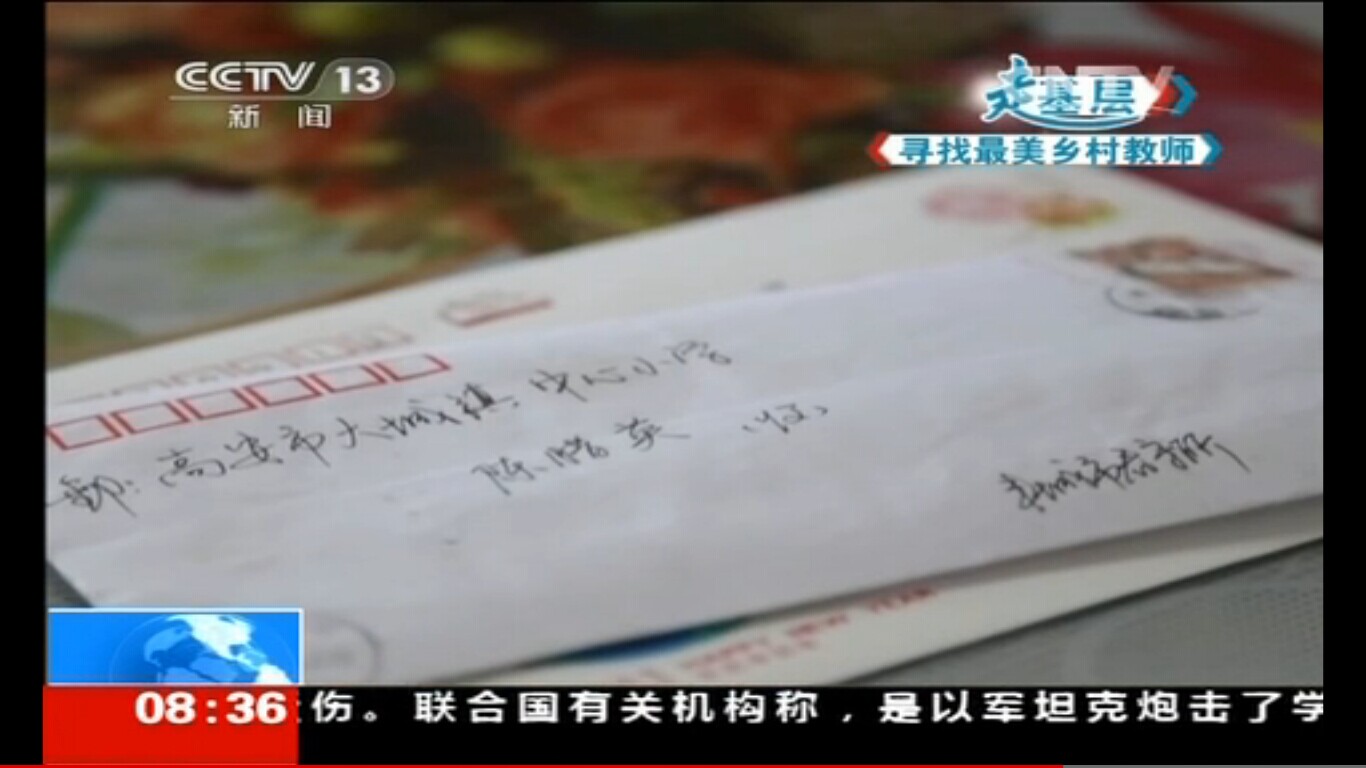 CCTV 13
新 闻
走基层
寻找最美乡村教师
高安市大城镇中心小学
陈 英 (收)
HAPPY NEW YEAR
08:36
伤。联合国有关机构称，是以军坦克炮击了学